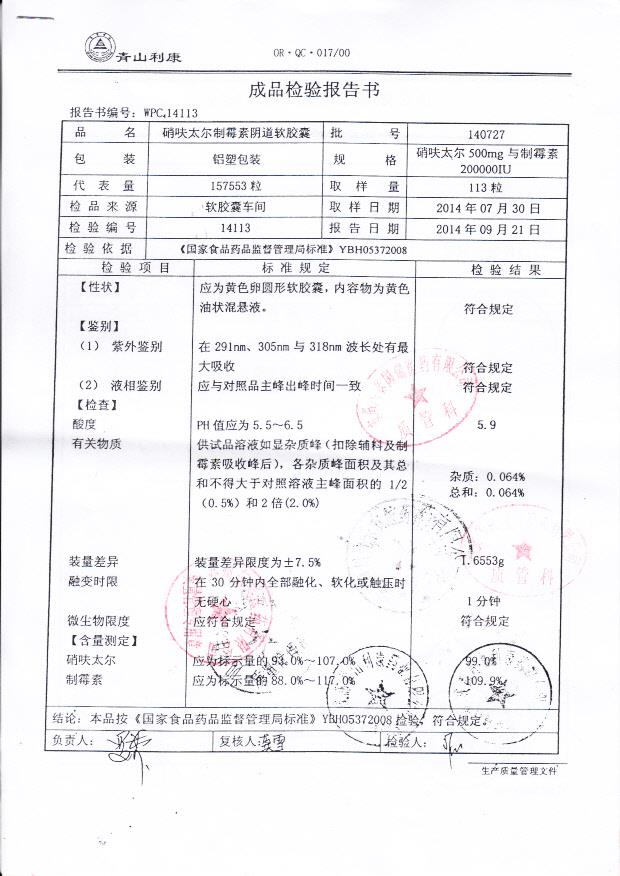 青山利康
OR·QC·017/00
成品检验报告书
报告书编号：WPC 14113
品名 硝呋太尔制霉素阴道软胶囊 批号 140727
包装 铝塑包装 规格 硝呋太尔 500mg 与制霉素
200000IU
代表量 157553 粒 取样量 113 粒
检品来源 软胶囊车间 取样日期 2014 年 07 月 30 日
检验编号 14113 报告日期 2014 年 09 月 21 日
检验依据 《国家食品药品监督管理局标准》YBH05372008
检验项目 标准规定 检验结果
【性状】 应为黄色卵圆形软胶囊，内容物为黄色
油状混悬液。 符合规定
【鉴别】
（1） 紫外鉴别 在 291nm、305nm 与 318nm 波长处有最
大吸收 符合规定
（2） 液相鉴别 应与对照品主峰出峰时间一致 符合规定
【检查】
酸度 PH 值应为 5.5～6.5 5.9
有关物质 供试品溶液如显杂质峰（扣除辅料及制
霉素吸收峰后），各杂质峰面积及其总
和不得大于对照溶液主峰面积的 1/2
（0.5%）和 2 倍(2.0%)
杂质：0.064%
总和：0.064%
装量差异 装量差异限度为±7.5% 1.6553g
融变时限 在 30 分钟内全部融化、软化或触压时
无硬心 1 分钟
微生物限度 应符合规定 符合规定
【含量测定】
硝呋太尔 应为标示量的 93.0%～107.0% 99.0%
制霉素 应为标示量的 88.0%～117.0% 109.9%
结论：本品按《国家食品药品监督管理局标准》YBH05372008 检验，符合规定。
负责人： 复核人： 检验人：
生产质量管理文件
质管科
质管科